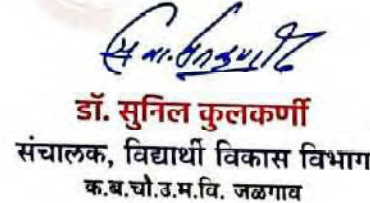 डॉ. सुनिल कुलकर्णी
संचालक, विद्यार्थी विकास विभाग
क.ब.चौ.उ.म.वि. जळगाव